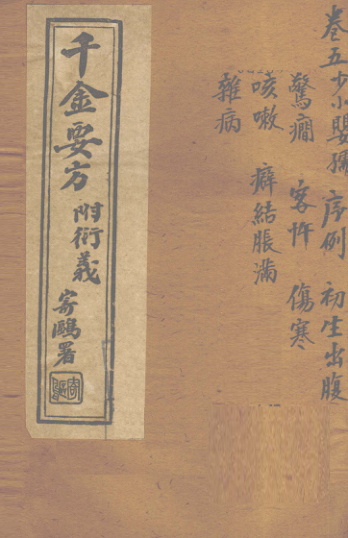 卷五少小嬰孺 序例 初生出腹
驚癇 客忤 傷寒
咳嗽 癖結脹滿
雜病
千金要方 附衍義 寄鷗署